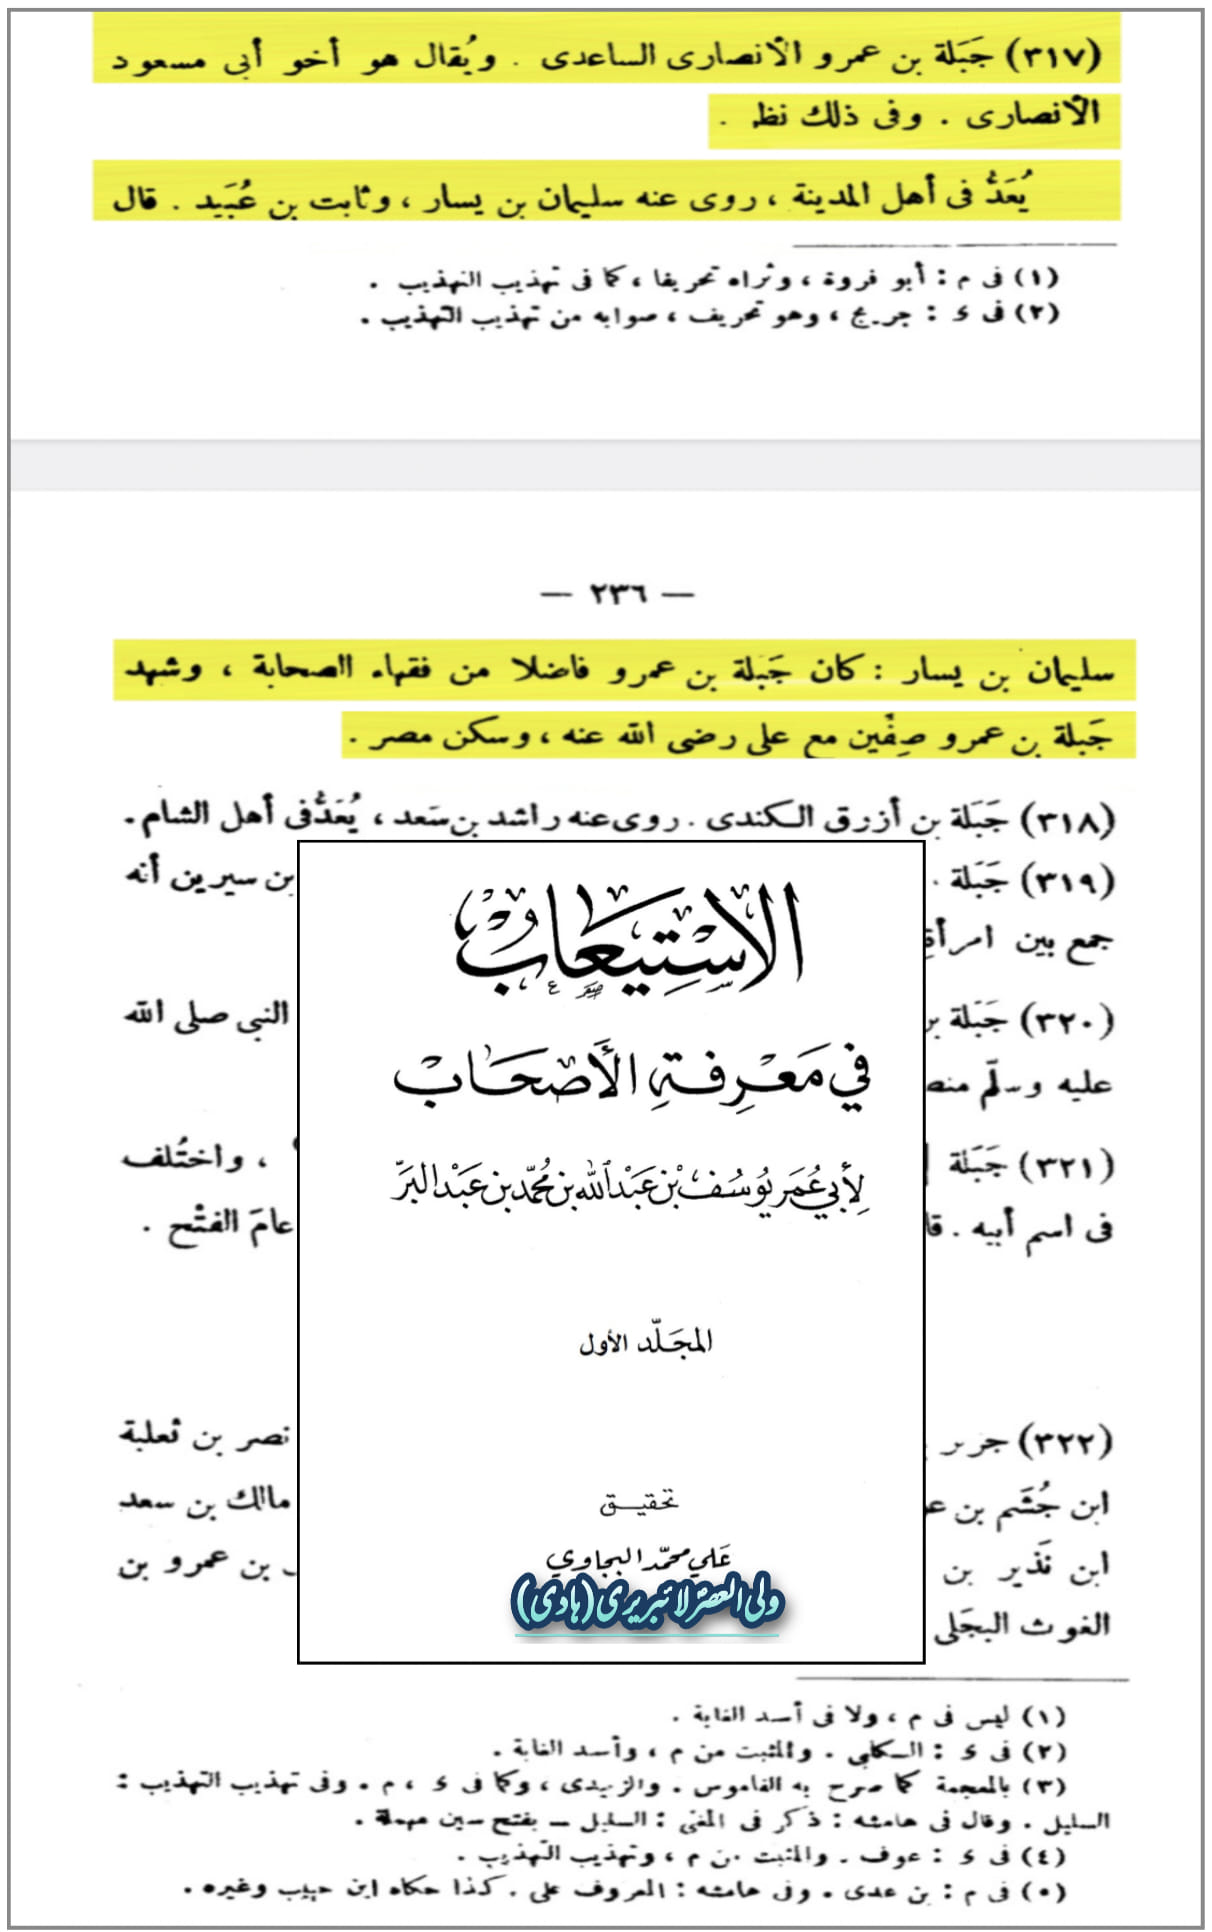 (٣١٧) جَبَلة بن عمرو الأنصارى الساعدى . ويُقال هو أخو أبى مسعود
الأنصارى . وفى ذلك نظر .
يُعَدُّ فى أهل المدينة ، روى عنه سليمان بن يسار ، وثابت بن عُبَيد . قال
(١) فى م : أبو فروة ، ونراه تحريفا ، كما فى تهذيب التهذيب .
(٢) فى ى : جريج ، وهو تحريف ، صوابه من تهذيب التهذيب .
— ٢٣٦ —
سليمان بن يسار : كان جَبلة بن عمرو فاضلا من فقهاء الصحابة ، وشهد
جَبلة بن عمرو صِفِّين مع على رضى الله عنه ، وسكن مصر .
(٣١٨) جَبَلة بن أزرق الكندى . روى عنه راشد بن سَعد ، يُعَدُّ فى أهل الشام .
(٣١٩) جَبَلة . بن سيرين أنه
جمع بين امرأة
(٣٢٠) جَبَلة بن النبى صلى الله
عليه وسلّم
(٣٢١) جَبَلة ، واختُلف
فى اسم أبيه . عامَ الفتْح .
الاستيعاب
في معرفة الأصحاب
لأبي عُمَر يُوسُف بن عَبْد الله بن مُحمّد بن عَبْد البَرّ
المجَلّد الأول
تحقيـق
عَلي محمّد البجاوي
ولی العصر لائبریری (ہادی)
(٣٢٢) جرير نصر بن ثعلبة
ابن جُشَم بن مالك بن سعد
ابن نَذير بن بن عمرو بن
الغوث البجَلى
(١) ليس فى م ، ولا فى أسد الغابة .
(٢) فى ى : الكلبى . والمثبت من م ، وأسد الغابة .
(٣) بالمعجمة كما صرح به القاموس . والزبيدى ، وكما فى ى ، م . وفى تهذيب التهذيب :
السليل . وقال فى هامشه : ذكر فى المغنى : السليل — بفتح سين مهملة .
(٤) فى ى : عوف . والمثبت من م ، وتهذيب التهذيب .
(٥) فى م : بن عدى . وفى هامشه : المعروف على . كذا حكاه ابن حبيب وغيره .